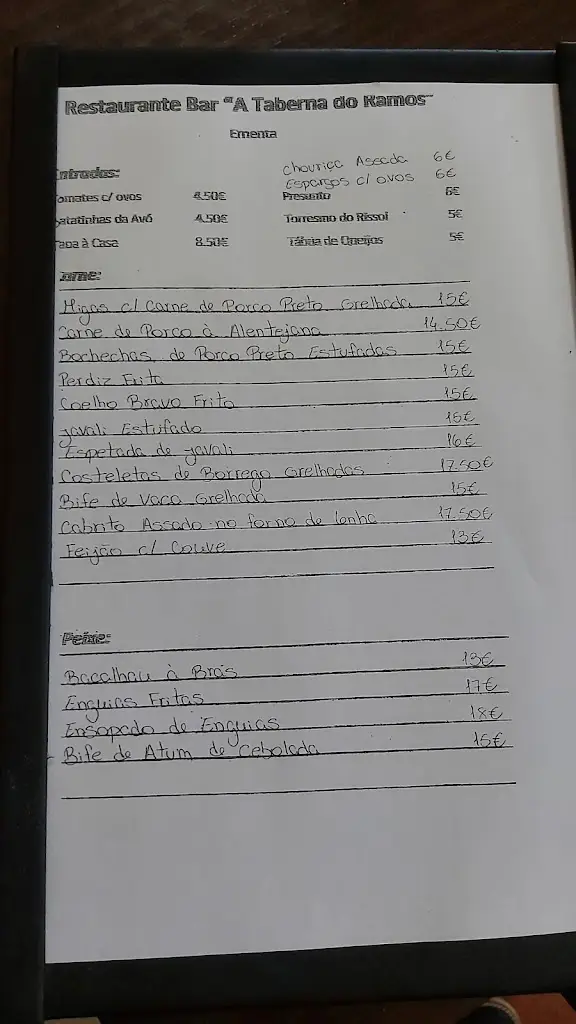 Restaurante Bar "A Taberna do Ramos"
Ementa
Entradas:
chouriça Assada 6€
Espargos c/ ovos 6€
Tomates c/ ovos 4.50€ Presunto 6€
Batatinhas da Avó 4.50€ Torresmo do Rissol 5€
à Casa 8.50€ Tábua de Queijos 5€
Carne:
Migas c/ Carne de Porco Preto Grelhada 15€
Carne de Porco à Alentejana 14.50€
Bochechas de Porco Preto Estufadas 15€
Perdiz Frita 15€
Coelho Bravo Frito 15€
Javali Estufado 15€
Espetada de Javali 16€
Costeletas de Borrego Grelhadas 17.50€
Bife de Vaca Grelhada 15€
Cabrito Assado no forno de lenha 17.50€
Feijão c/ Couve 13€
Peixe:
Bacalhau à Brás 13€
Enguias Fritas 17€
Ensopado de Enguias 18€
Bife de Atum de Cebolada 15€